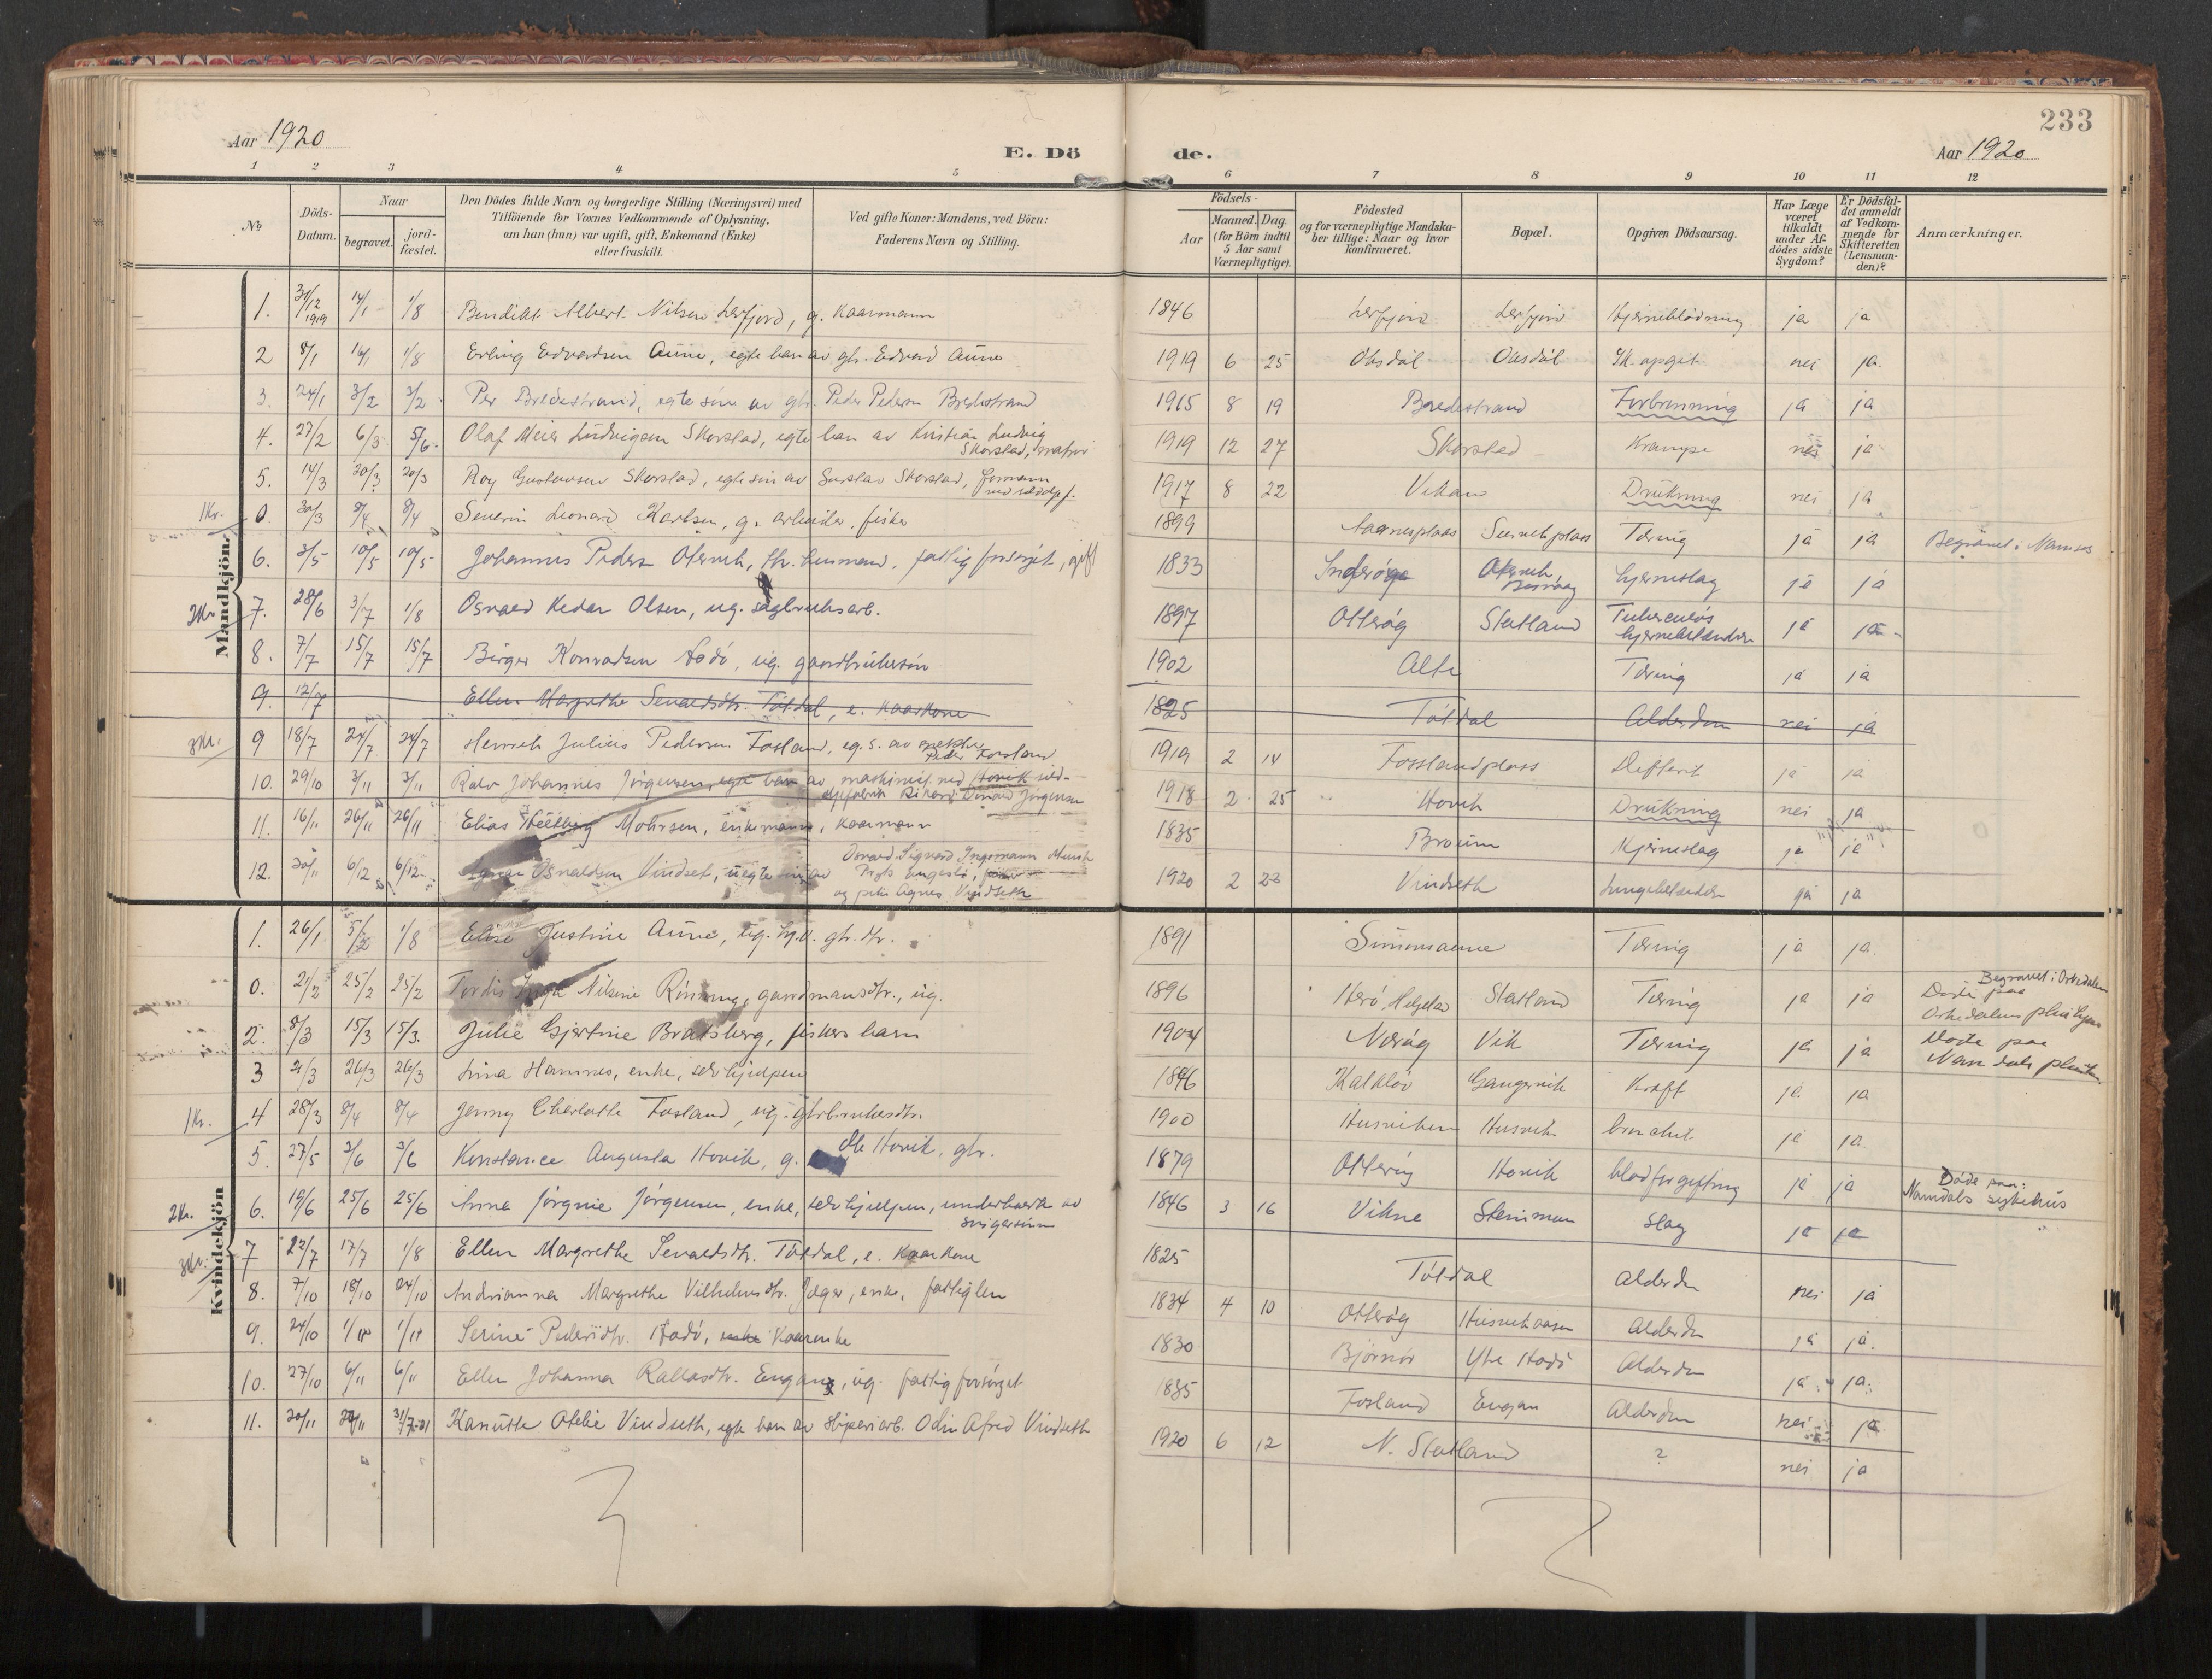 233
Aar 1920
E. Dö
de.
Aar 1920
1 2 3 4 5 6 7 8 9 10 11 12
No
Döds-Datum.
Naar
begravet.
jord-fæstet.
Den Dödes fulde Navn og borgerlige Stilling (Næringsvei) med
Tilföiende for Voxnes Vedkommende af Oplysning,
om han (hun) var ugift, gift, Enkemand (Enke)
eller fraskilt.
Ved gifte Koner: Mandens, ved Börn:
Faderens Navn og Stilling.
Födsels-
Aar
Maaned. Dag.
(for Börn indtil
5 Aar samt
Værnepligtige).
Födested
og for værnepligtige Mandska-
ber tillige: Naar og hvor
konfirmeret.
Bopæl.
Opgiven Dödsaarsag.
Har Læge
været
tilkaldt
under Af-
dödes sidste
Sygdom?
Er Dödsfal-
det anmeldt
af Vedkom-
mende for
Skifteretten
(Lensman-
den)?
Anmærkninger.
Mandkjön.
1. 31/12 1919 14/1 1/8 Bendikt Albert Nilsen Lerfjord, g. kaarmann 1846 Lerfjord Lerfjord Hjerneblödning ja ja
2 8/1 1/8 Erling Edvardsen Aune, egte barn av gbr. Edvard Aune 1919 6 25 Oksdal Oksdal nei ja
3. 24/1 3/2 3/2 Per Bredestrand, egte sön av gbr. Peder Pedersen Bredestrand 1915 8 19 Bredestrand Forbrenning ja ja
4. 27/2 6/3 5/6 Olaf Meier Ludvigsen Skorstad, egte barn av Kristian Ludvig Skorstad, 1919 12 27 Skorstad Krampe nei ja
5. 14/3 20/3 20/3 Roy Gustavsen Skorstad, egte sön av Gustav Skorstad, formann 1917 8 22 Vikan Drukning nei ja
1 Kr. 0. 30/3 8/4 8/4 Severin Leonard Karlsen, g. arbeider, fisker 1899 Tæring ja ja Begravet i Namsos
6. 3/5 10/5 10/5 Johannes Peders Utervik, fhv. husmand, fattig forsörget, gift 1833 Inderöy hjerneslag ja ja
2 Kr. 7. 28/6 3/7 1/8 Osvald Kedar Olsen, ug. sagbruksarb. 1897 Otteröy Statland Tuberculös hjernebetændelse ja ja
8. 7/7 15/7 15/7 Birger Konradsen Hodö, ug. gaardbrukersön 1902 Alte Tæring ja ja
9. 12/7 Ellen Margrethe Sevaldsdtr. Tötdal, e. kaarkone 1825 Tötdal Alderdom nei ja
3 Kr. 9 18/7 24/7 24/7 Henrik Julius Pedersen Fosland, eg. s. av Peder Fosland 1919 2 14 Fosslandplass Difterit ja ja
10. 29/10 3/11 3/11 Johannes Jörgensen, egte barn av maskinist ved Hovik sild-
oljefabrik Rikard Jörgensen 1918 2 25 Hovik Drukning nei ja
11. 16/11 26/11 26/11 Elias Mohrsen, enkemann, kaarmann 1835 Hjerneslag ja ja
12. 30/11 6/12 6/12 Osvaldsen Vindset, uegte sön av Osvald Sigvard Ingemann
og pike Agnes Vindseth 1920 2 22 Vindseth Lungebetændelse ja ja
Kvindekjön
1. 26/1 5/2 1/8 Elise Justine Aune, ug. gbr. dtr. 1891 Simonsaune Tæring ja ja
0. 21/2 25/2 25/2 Tordis Inga Nilsine Rönning, gaardmansdtr., ug. 1896 Herö, Helgeland Statland Tæring ja ja Begravet i Orkedalen
Döde paa
Orkedalens pleiehjem
2. 8/3 15/3 15/3. Julie Gjertine Bratsberg, fiskers barn 1904 Neröy Vik Tæring ja ja Döde paa
Namdals pleiehjem
3 21/3 26/3 26/3 Lina Hannes, enke, selvhjulpen 1846 Gangervik Kræft ja ja
1 Kr. 4 28/3 8/4 8/4 Jenny Charlotte Fosland, ug. gbrukesdtr. 1900 Husviken Husvik bronchit ja ja
5. 27/5 3/6 3/6 Konstance Augusta Hovik, g. Ole Hovik, gbr. 1879 Otteröy Hovik blodforgiftning ja ja Döde paa:
Namdals sykehus
2 Kr. 6. 19/6 25/6 25/6 Anna Jörgine Jörgensen, enke, selvhjulpen, underhavet av
svigersönn 1846 3 16 Vikne Steinman Slag ja ja
3 Kr. 7 12/7 17/7 1/8 Ellen Margrethe Sevaldsdtr. Tötdal, e. kaarkone 1825 Tötdal Alderdom nei ja
8. 7/10 18/10 24/10 Andrianna Margrethe Vilhelmsdtr. Jæger, enke, fattiglem 1834 4 10 Otteröy Husvikaasen Alderdom ja ja.
9. 24/10 1/11 1/11 Serine Pedersdtr. Hodö, enke kaarenke 1830 Björnör Ytre Hodö Alderdom ja ja.
10. 27/10 6/11 6/11 Ellen Johanna Engan, ug. fattig forsörget 1835 Fosland Engan Alderdom nei ja
11. 20/11 31/7-21 Kanutte Otelie Vindseth, egte barn av Odin Afred Vindseth 1920 6 12 N. Statland ? nei ja